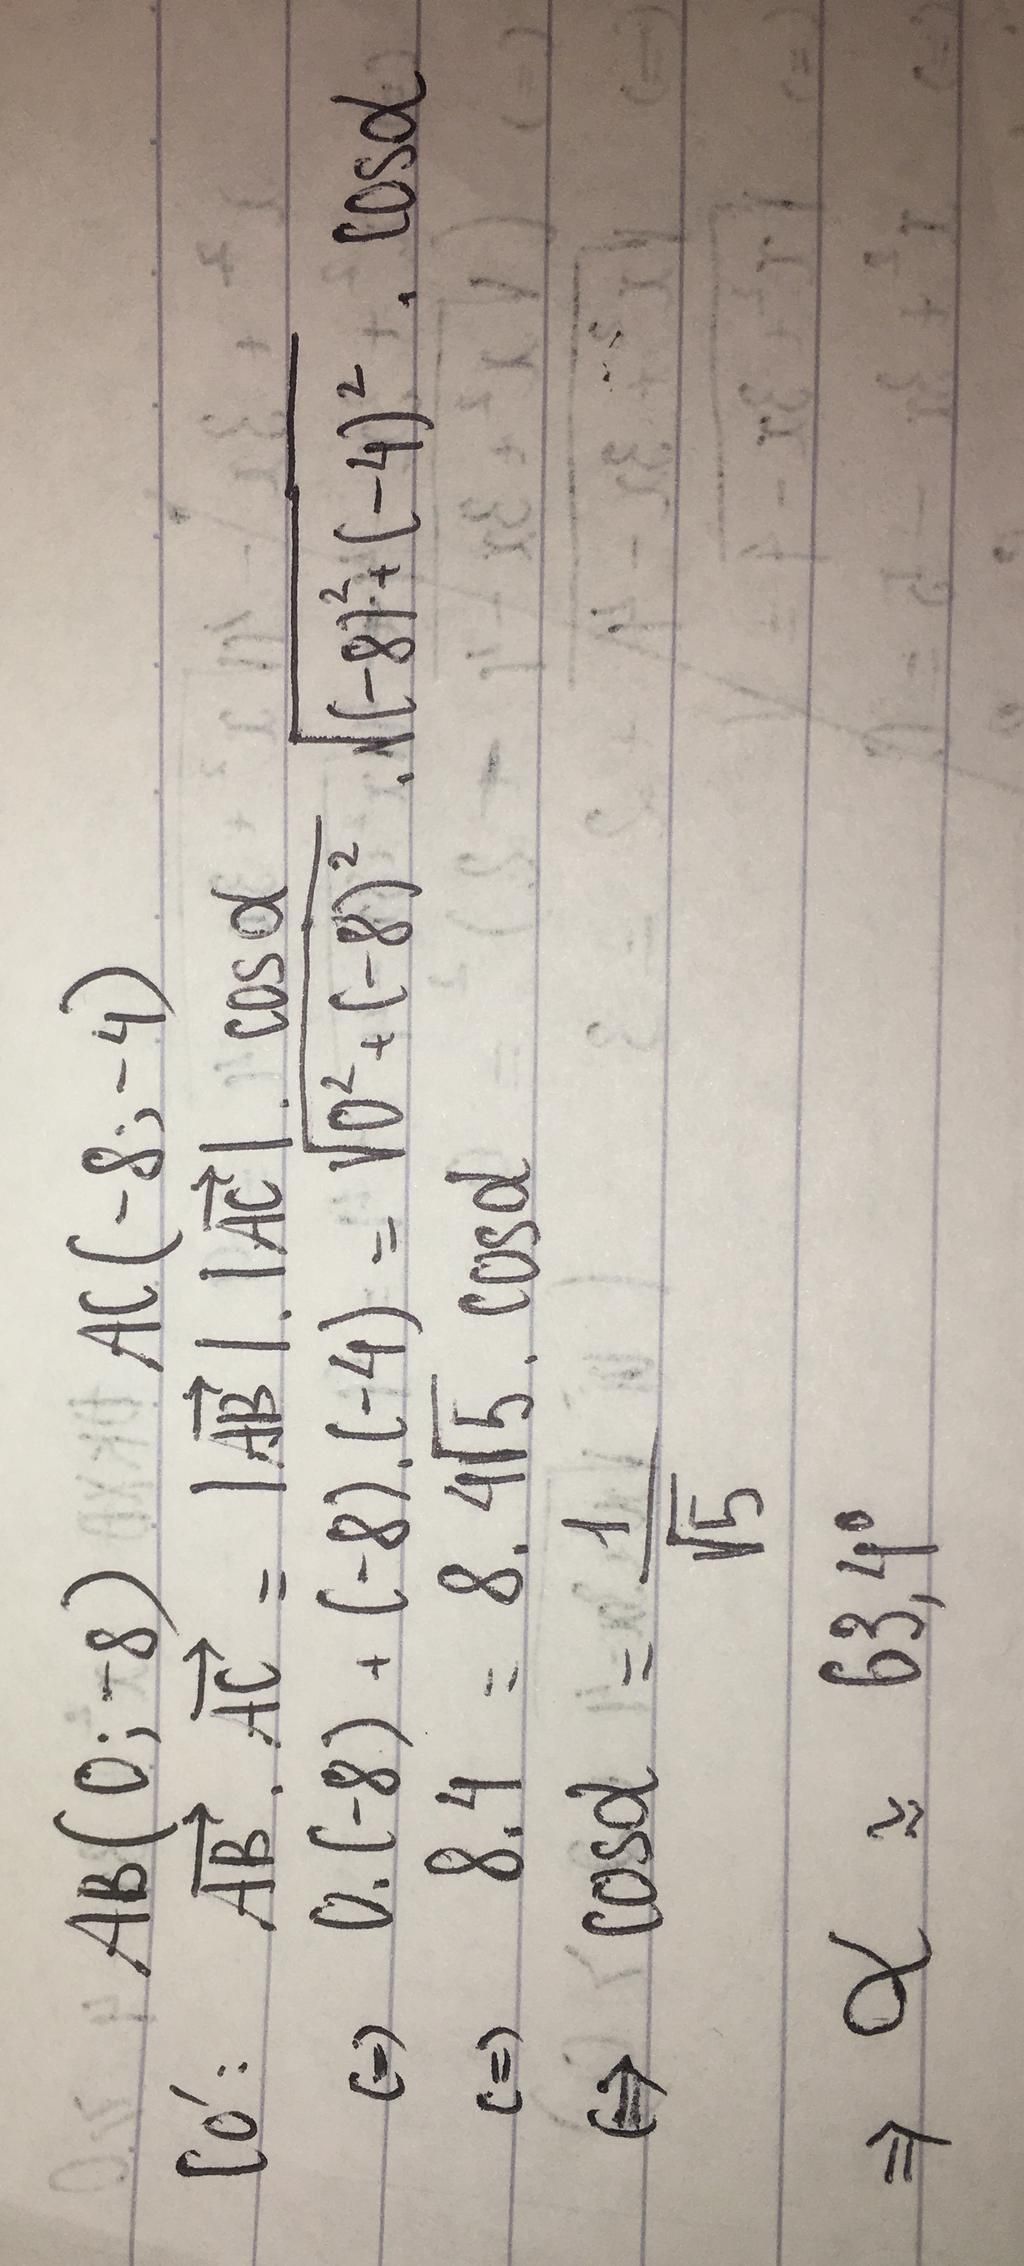 AB(0;-8) AC(-8;-4)
Có: \overrightarrow{AB} . \overrightarrow{AC} = |\overrightarrow{AB}| . |\overrightarrow{AC}| . cosα
(=) 0.(-8) + (-8).(-4) = √(0² + (-8)²) . √((-8)² + (-4)²) . cosα
(=) 8.4 = 8.4√5 . cosα
(=) cosα = 1/√5
⇒ α ≈ 63,4°